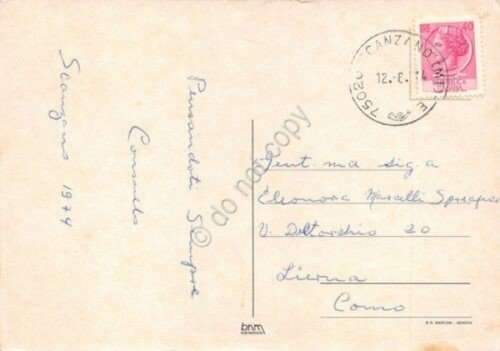 Scanzano 1974
Pensandoti Sempre
Consuelo
75020 SCANZANO (MT)
12.-8. 74
40
© do not copy
Gent. ma sig. a
Eleonora Marcelli Spreafico
V. Dell torchio 20
Lierna
Como
bnm
GENOVA
R. R. MARCONI - GENOVA